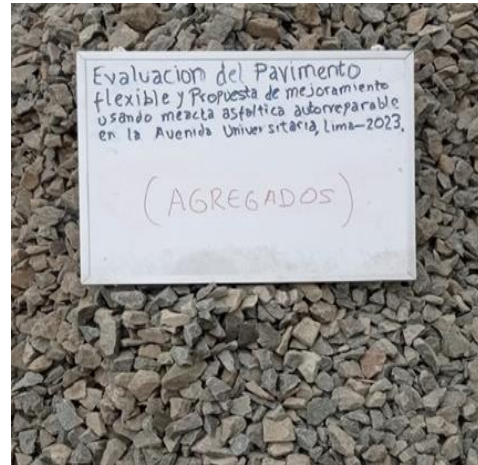 Evaluacion del Pavimento
flexible y Propuesta de mejoramiento
usando mezcla asfaltica autorreparable
en la Avenida Universitaria, Lima-2023.
(AGREGADOS)